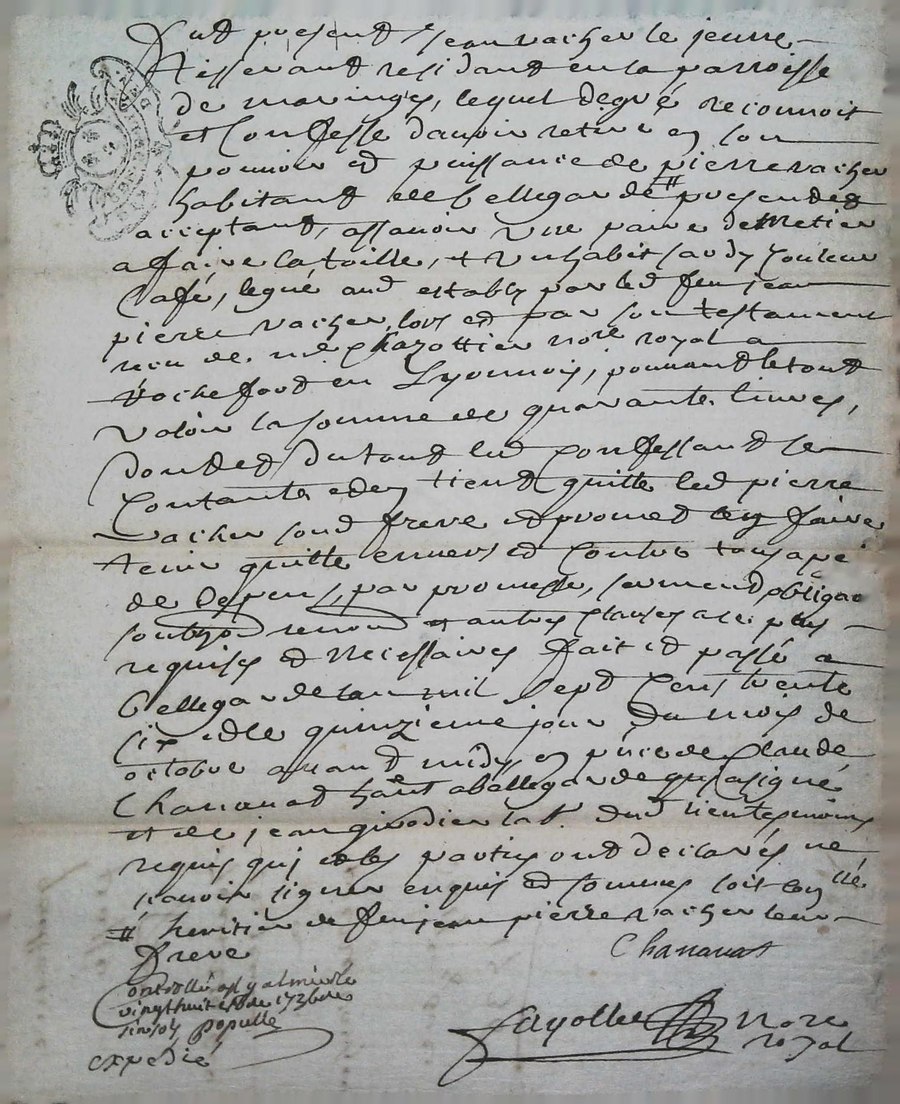 fut present sr jean vacher le jeune
tisserant residant en la parroisse
de maringes, lequel de gré reconnoit
et confesse d'avoir retiré en son
pouvoir et puissance de pierre vacher
habitant de bellegarde # present et
acceptant, assavoir une paire de metier
a faire la toille, et un habit couleur
café, legué aud estably par led feu jean
pierre vacher, lors et par son testament
receu de me Chazottier nore royal a
Rochefort en Lyonnois, pouvant le tout
valoir la somme de quarante livres,
dont et du tout led confessant se
contante et en tient quitte led pierre
vacher sond frere et promet l'en faire
tenir quitte envers et contre tous a peine
de depens, par promesse, serment obligaon
soubzon renon et autres clauses a ce plus
requises et necessaires fait et passé a
bellegarde l'an mil sept cens trente
six et le quinzieme jour du mois de
octobre avant midy en pnce de Claude
Chanavat hant a bellegarde qui a signé
et de jean girodier lab. dud lieu tesmoins
requis qui et les parties ont declarés ne
scavoir signer enquis et sommes soit
# heritier de feu jean pierre vacher leur
frere
Chanavat
Controllé a st galmier le
vingt huit 8bre 1736 rec
six sols populle
expedié
fayolle nore
royal